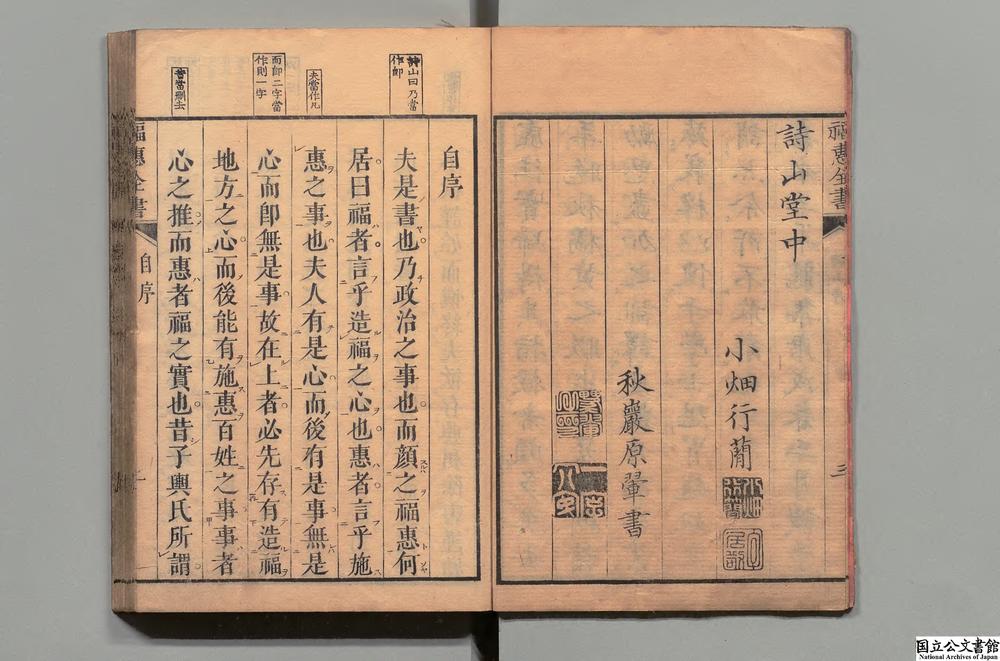 福惠全書
三
詩山堂中
小畑行蕑
秋巖原翬書
詩山曰乃當
作卽
夫當作凡
而卽二字當
作則一字
昔當刪去
自序
夫是書也乃政治之事也而顏之福惠何
居曰福者言乎造福之心也惠者言乎施
惠之事也夫人有是心而後有是事無是
心而卽無是事故在上者必先存有造福
地方之心而後能有施惠百姓之事事者
心之推而惠者福之實也昔子輿氏所謂
福惠全書
自序
一
国立公文書館
National Archives of Japan